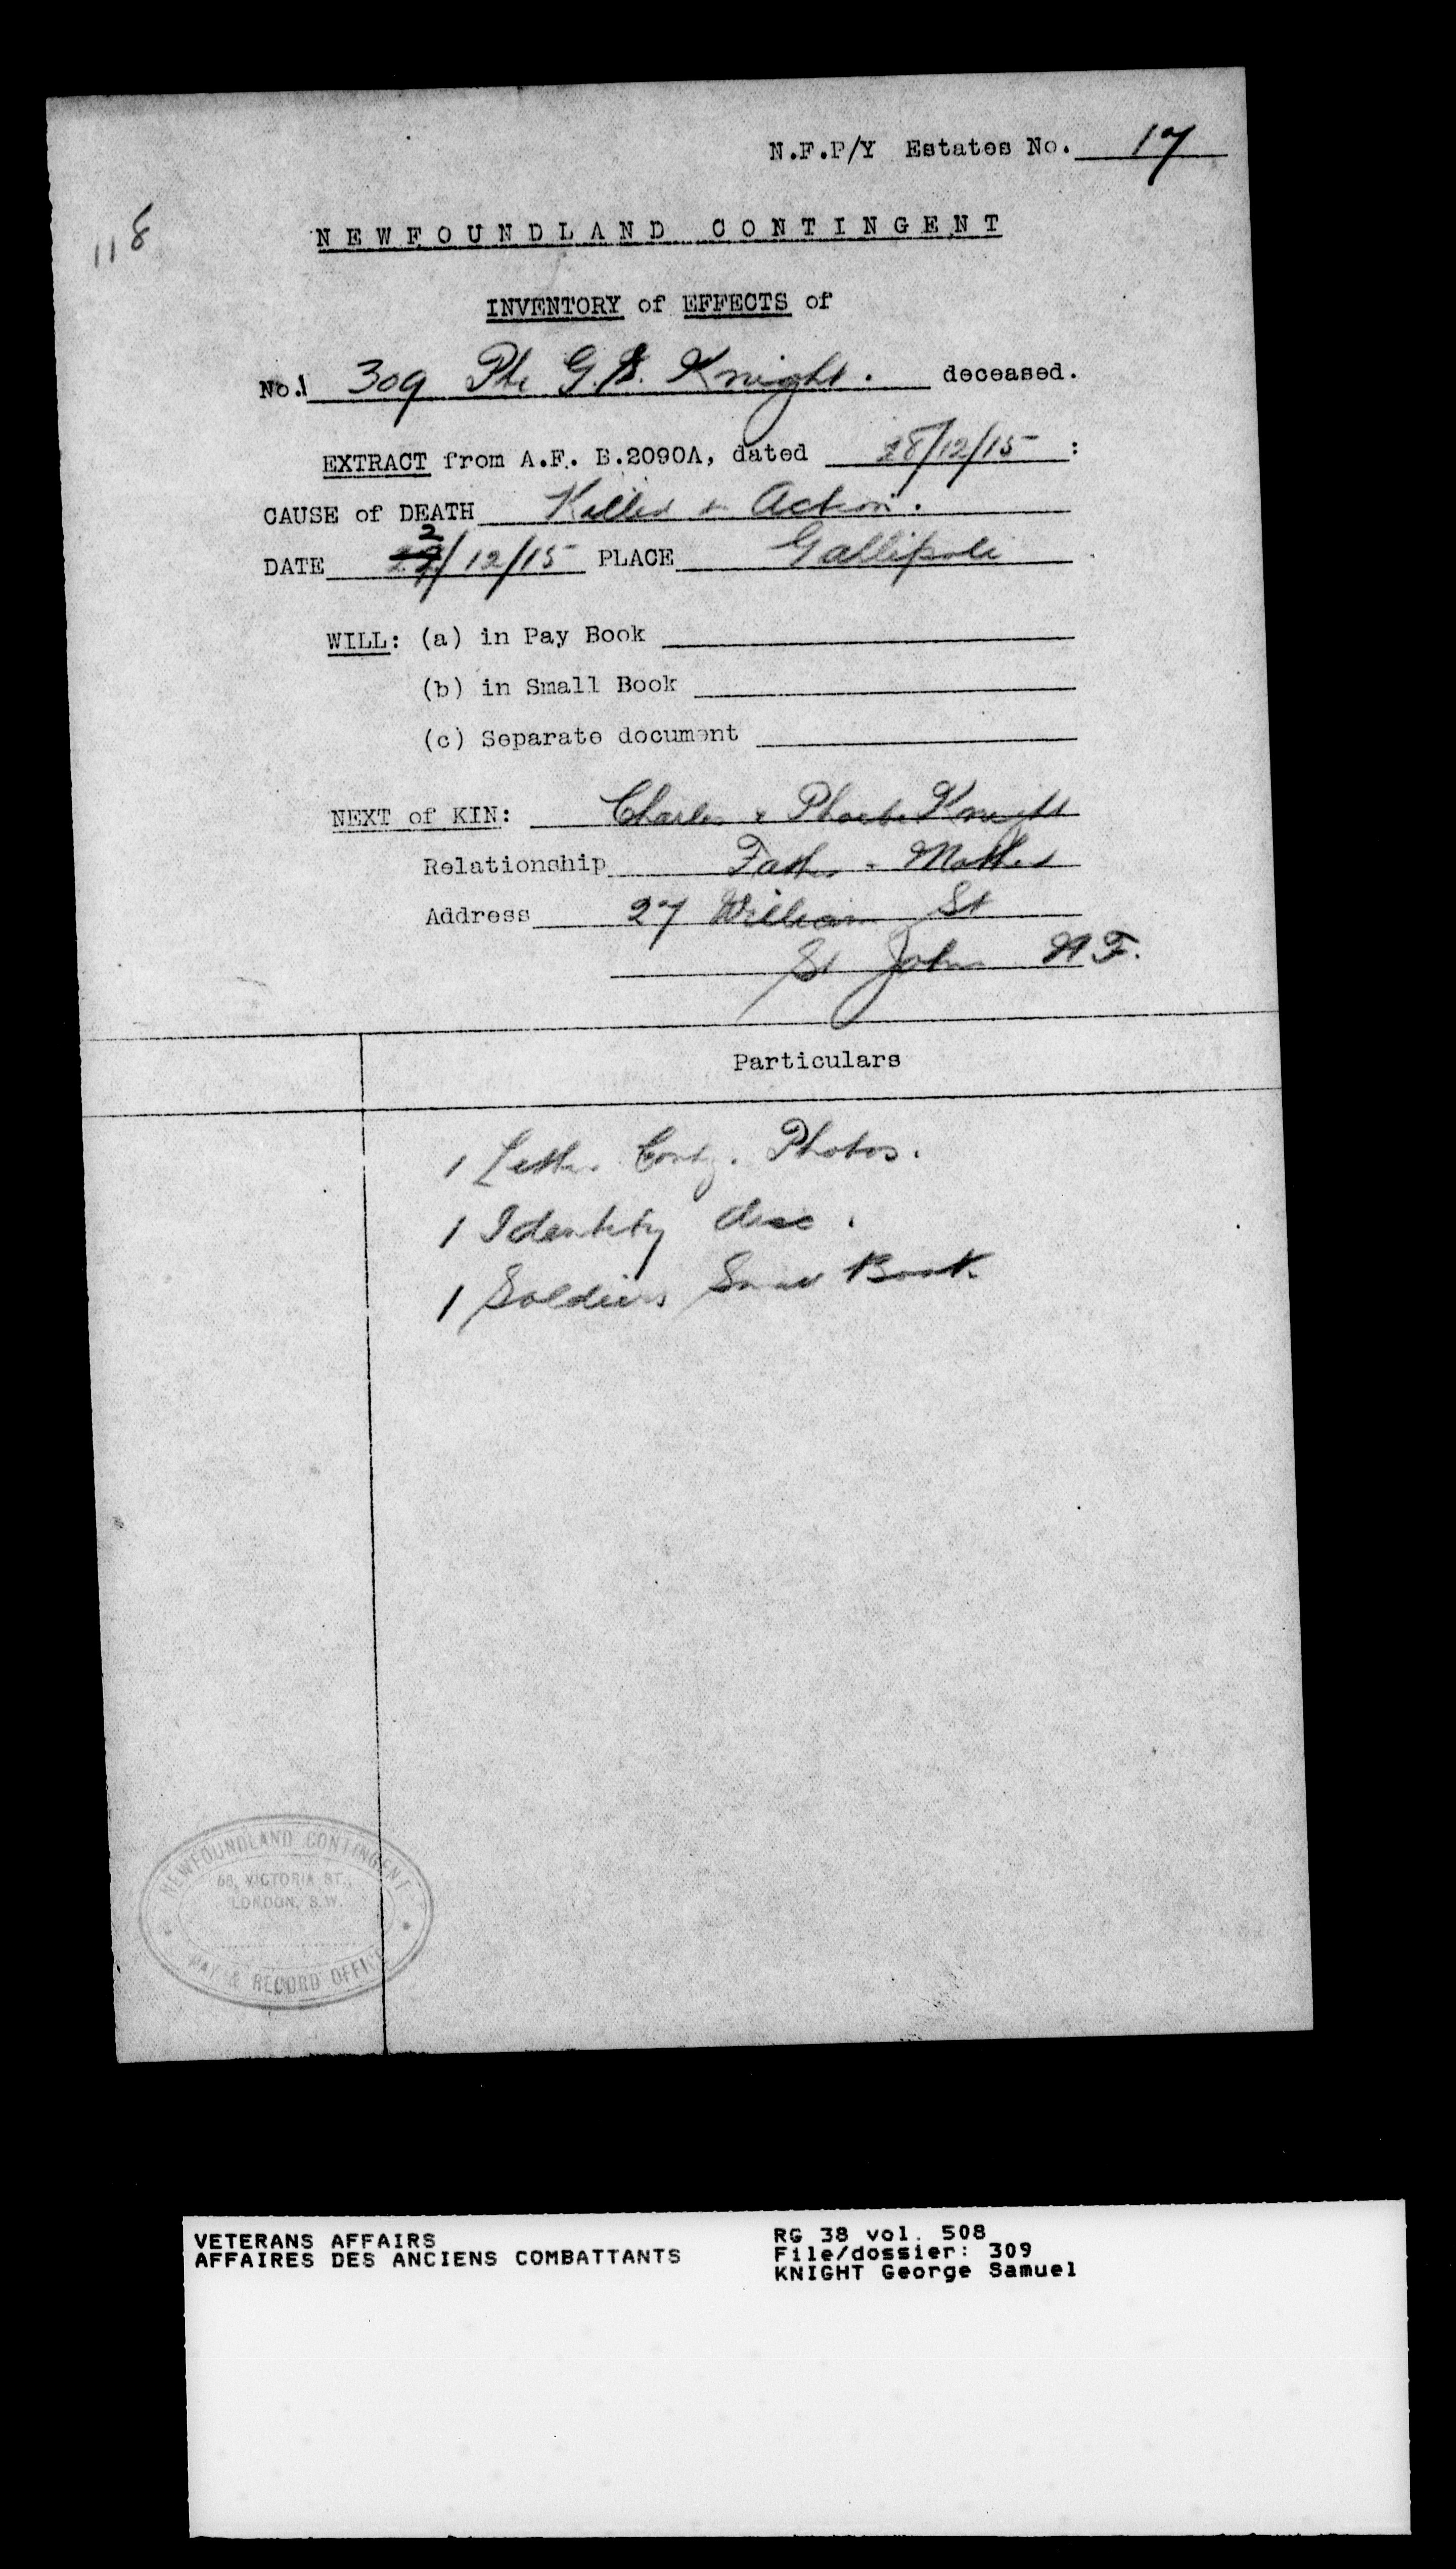 N.F.P/Y Estates No. 17
118
NEWFOUNDLAND CONTINGENT
INVENTORY of EFFECTS of
No. 309 Pte G.S. Knight. deceased.
EXTRACT from A.F. B.2090A, dated 28/12/15 :
CAUSE of DEATH Killed in Action.
2
DATE 22/12/15 PLACE Gallipoli
WILL: (a) in Pay Book
(b) in Small Book
(c) Separate document
NEXT of KIN: Charles & Phoebe Knight
Relationship Father & Mother
Address 27 William St
St Johns N.F.
Particulars
1 Letter Contg. Photos.
1 Identity disc.
1 Soldiers Small Book.
NEWFOUNDLAND CONTINGENT
58, VICTORIA ST.,
LONDON, S.W.
PAY & RECORD OFFICE
VETERANS AFFAIRS
AFFAIRES DES ANCIENS COMBATTANTS
RG 38 vol. 508
File/dossier: 309
KNIGHT George Samuel